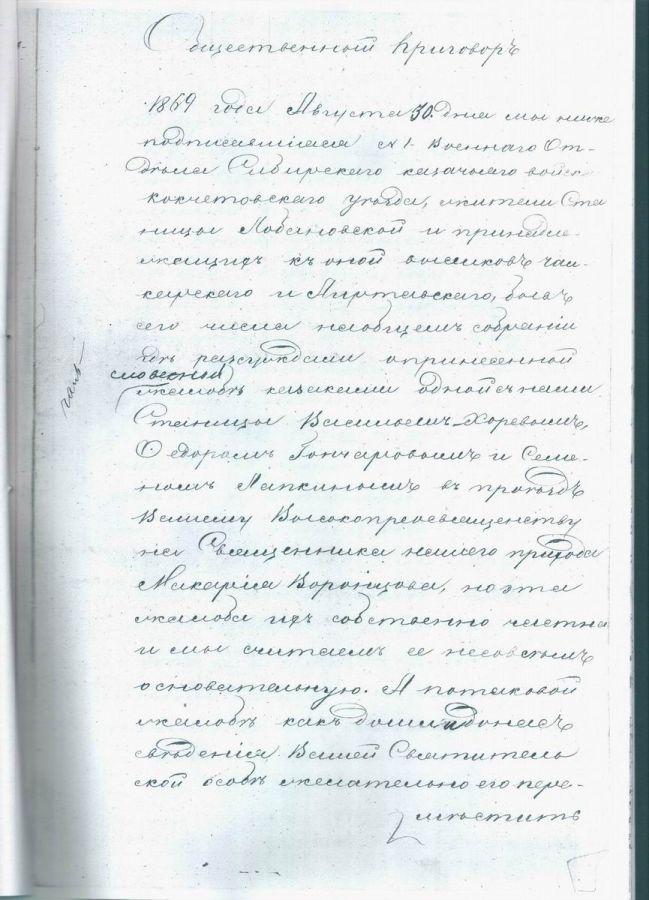 Общественный Приговоръ
1869 года Августа 30. дня мы ниже
подписавшіеся № 1. Военнаго От-
дѣла Сибирскаго казачьяго войска
Кокчетовскаго уѣзда, жители Ста
ницы Лобановской и принадле-
жащихъ къ оной выселковъ Чал-
карскаго и Аиртавскаго, бывъ
сего числа наобщемъ собраніи
гдѣ разсуждали опринесенной
словесной
жалобѣ казаками одной съ нами
Станицы Васильемъ Хоревымъ,
Ѳедоромъ Гончаровымъ и Семе-
номъ Лапкинымъ въ проѣздъ
Вашему Высокопреосвященству
на Священника нашего прихода
Макарія Воронцова, но эта
жалоба ихъ собственно частна
и мы считаемъ ее несовсемъ
основательную. А потаковой
жалобѣ какъ дошли донасъ
свѣденія Вашей Святитель
ской особѣ желательно его пере-
мѣстить